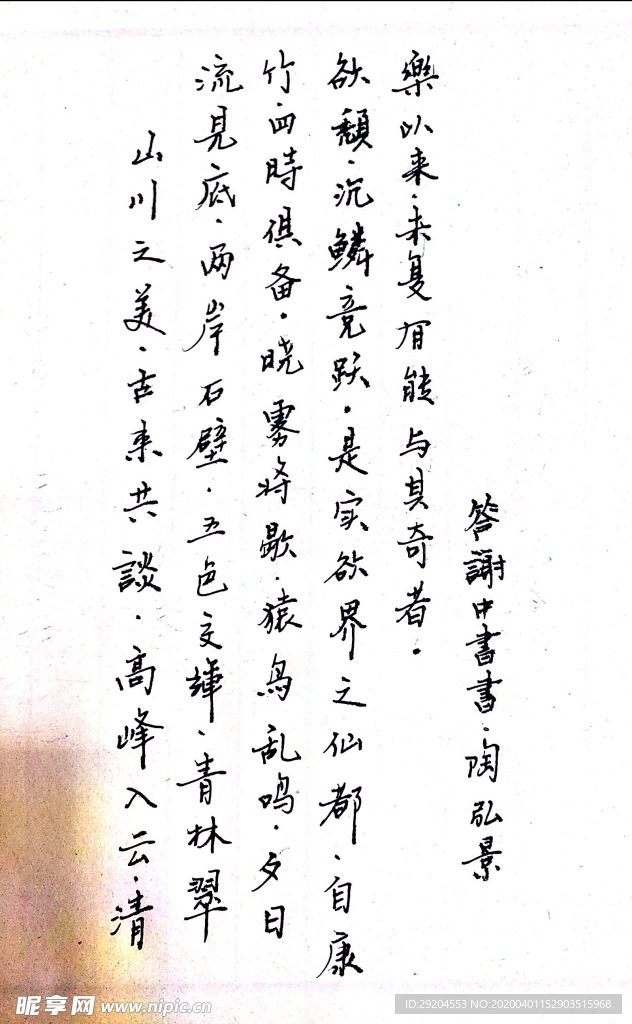 山川之美．古来共談．高峰入云．清
流見底．两岸石壁．五色交輝．青林翠
竹．四時俱备．晓雾将歇．猿鸟乱鸣．夕日
欲頹．沉鳞竞跃．是实欲界之仙都．自康
樂以来．未复有能与其奇者．
答謝中書書．陶弘景
昵享网 www.nipic.cn
ID:29204553 NO:20200401152903515968